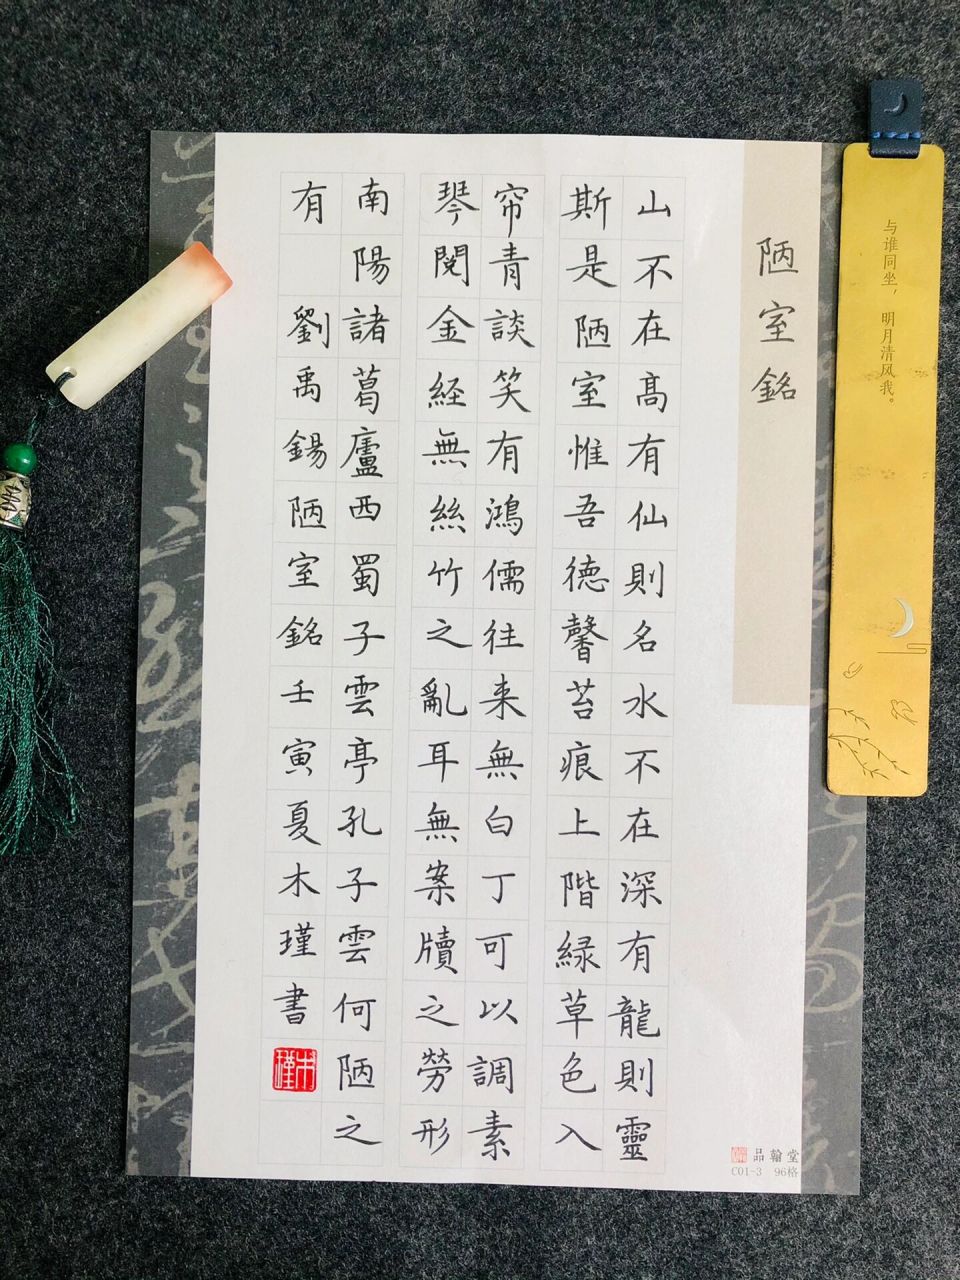 陋室銘
山不在高有仙則名水不在深有龍則靈
斯是陋室惟吾德馨苔痕上階緑草色入
帘青談笑有鴻儒往来無白丁可以調素
琴閱金経無絲竹之亂耳無案牘之勞形
南陽諸葛廬西蜀子雲亭孔子雲何陋之
有 劉禹錫陋室銘壬寅夏木瑾書
木瑾
与谁同坐，明月清风我。
品翰堂
C01-3 96格